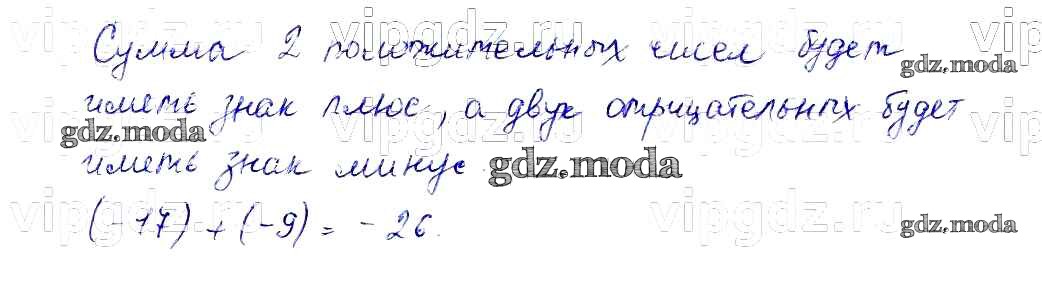 Сумма 2 положительных чисел будет
иметь знак плюс, а двух отрицательных будет
иметь знак минус
(-17) + (-9) = -26.
gdz.moda
gdz.moda
gdz.moda
gdz.moda
vipgdz.ru
vipgdz.ru
vipgdz.ru
vipgdz.ru
vipgdz.ru
vipgdz.ru